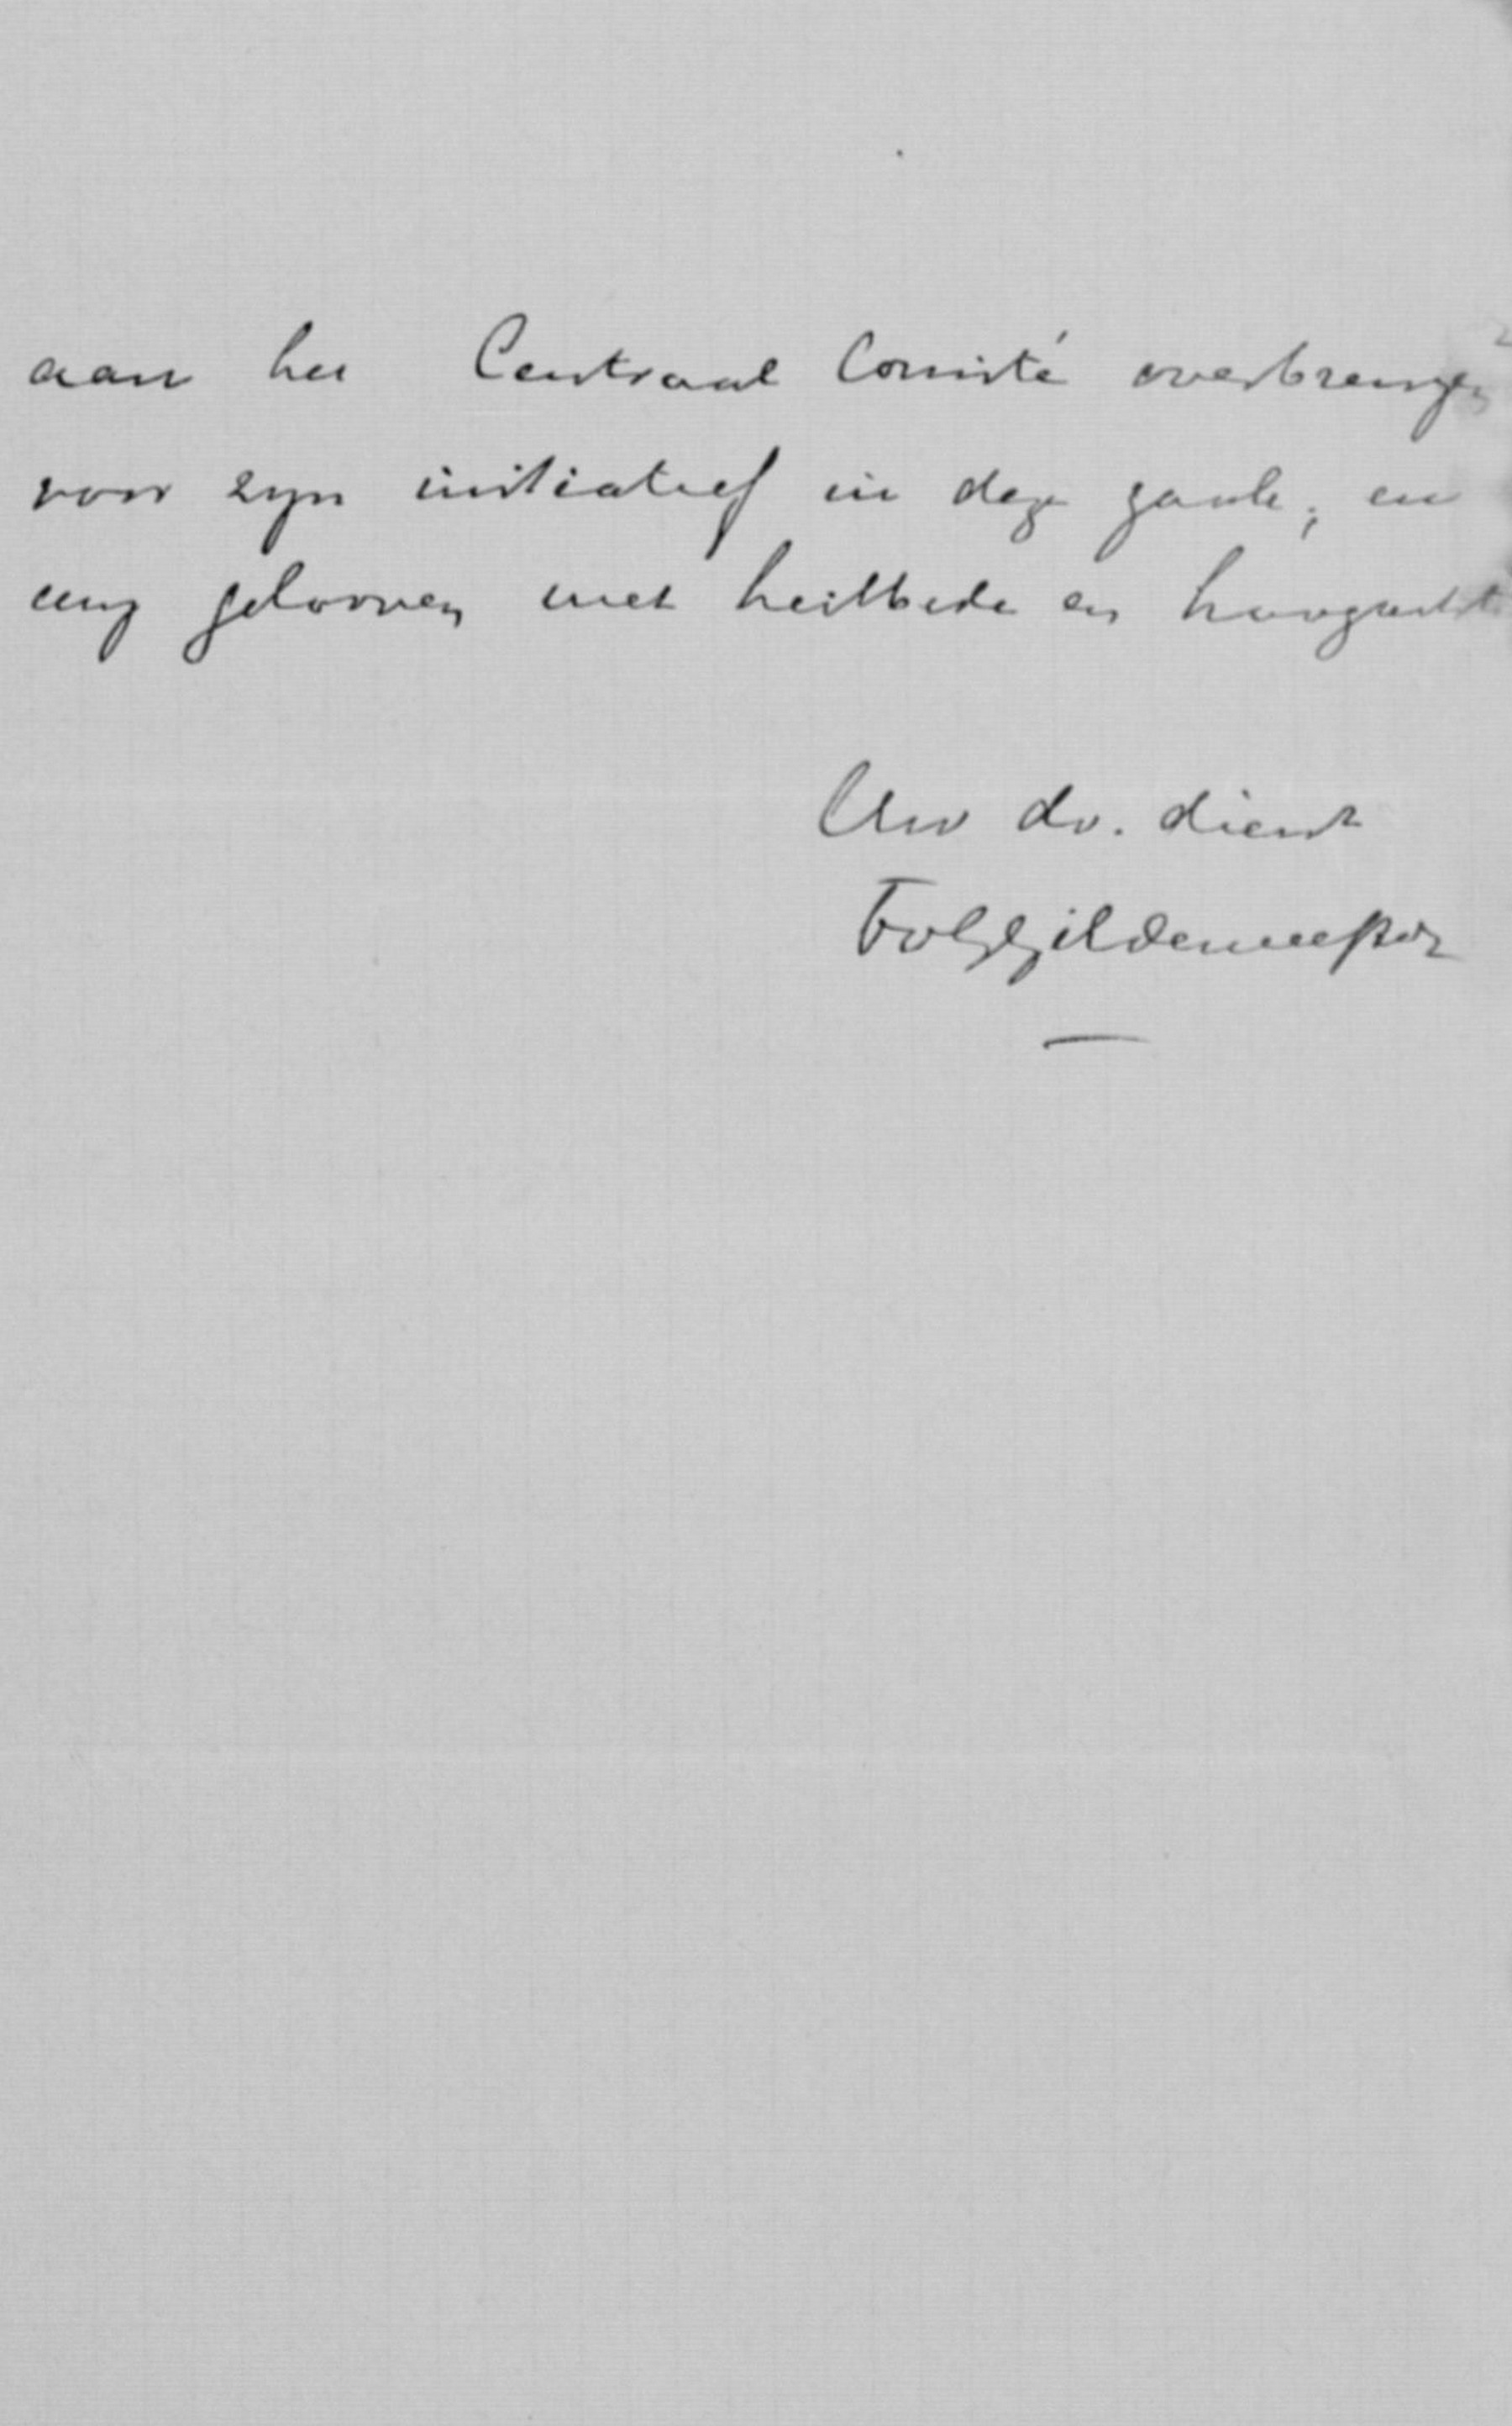 aan het Centraal Comité overbrengen
voor zyn initiatief in deze zaak, en
my gelooven met heilbede en hoogacht
Uw dv. dienr
FvGhGildemeester